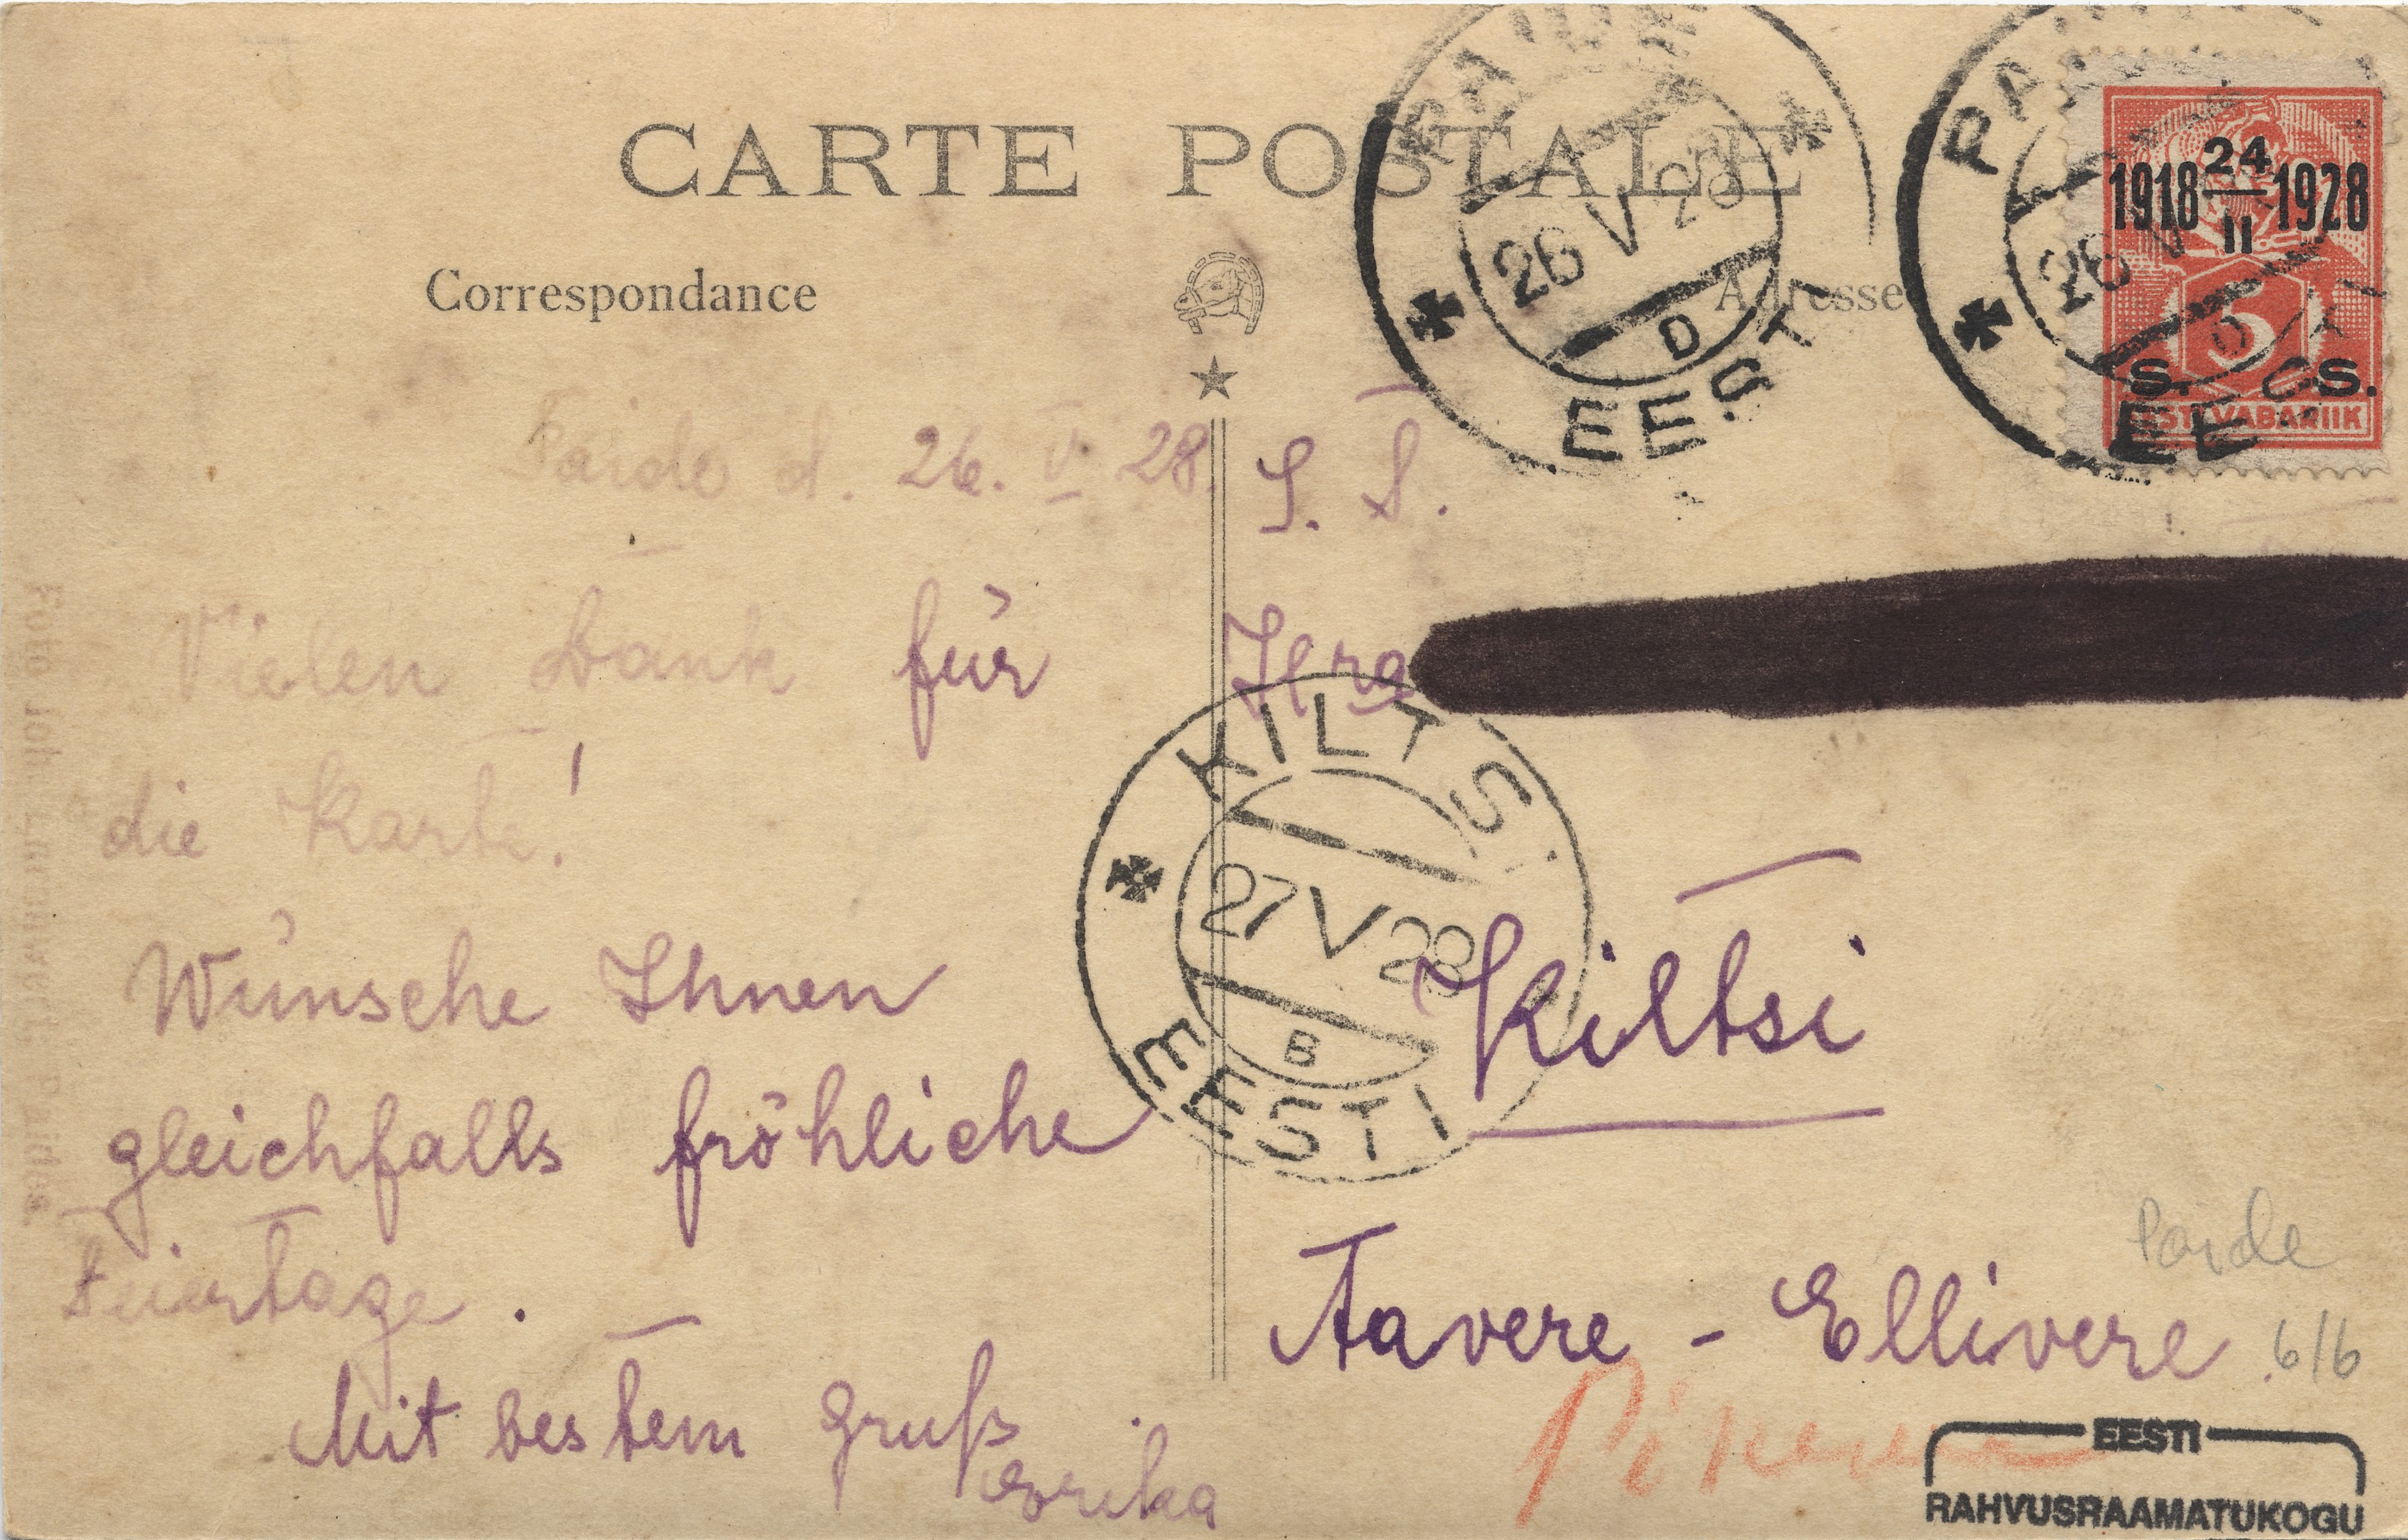 CARTE POSTALE
Correspondance
Adresse
PAIDE
26 V 28
D
EESTI
PAI
26 V
D
EESTI
1918 24 II 1928
5
S. S.
EESTI VABARIIK
Paide d. 26. V. 28.
Vielen Dank für
die Karte!
Wünsche Ihnen
gleichfalls fröhliche
Feiertage.
Mit bestem Gruß
Erika
S. S.
KILTSI
27 V 28
B
EESTI
Kiltsi
Tavere - Ellivere
Paide
6/6
EESTI
RAHVUSRAAMATUKOGU
Foto Joh. Paides.